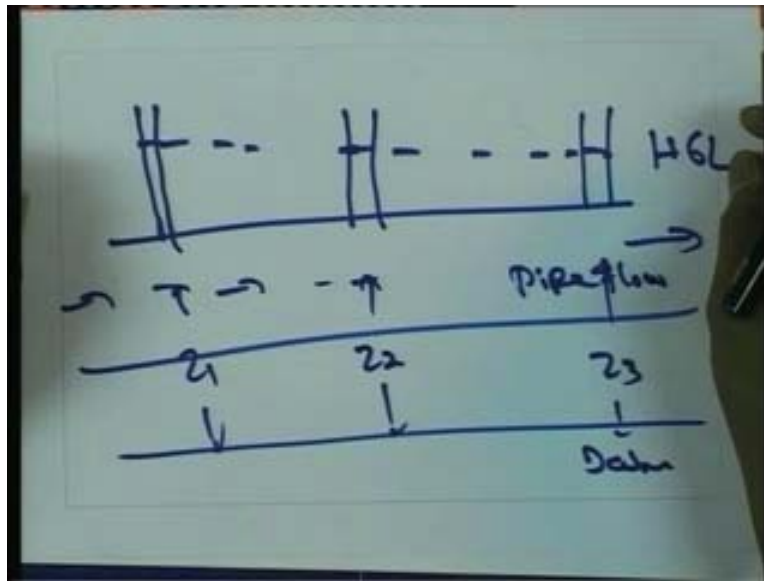 HGL
Pipe flow
Z1 Z2 Z3
Datum